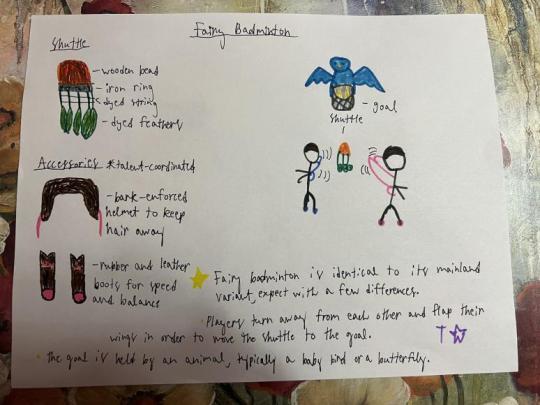 Fairy Badminton
Shuttle
- wooden bead
- iron ring
- dyed string
- dyed feathers
- goal
shuttle
Accessories *talent-coordinated
- bark-enforced
helmet to keep
hair away
- rubber and leather
boots for speed
and balance
Fairy badminton is identical to its mainland
variant, expect with a few differences.
· Players turn away from each other and flap their
wings in order to move the shuttle to the goal.
· the goal is held by an animal, typically a baby bird or a butterfly.